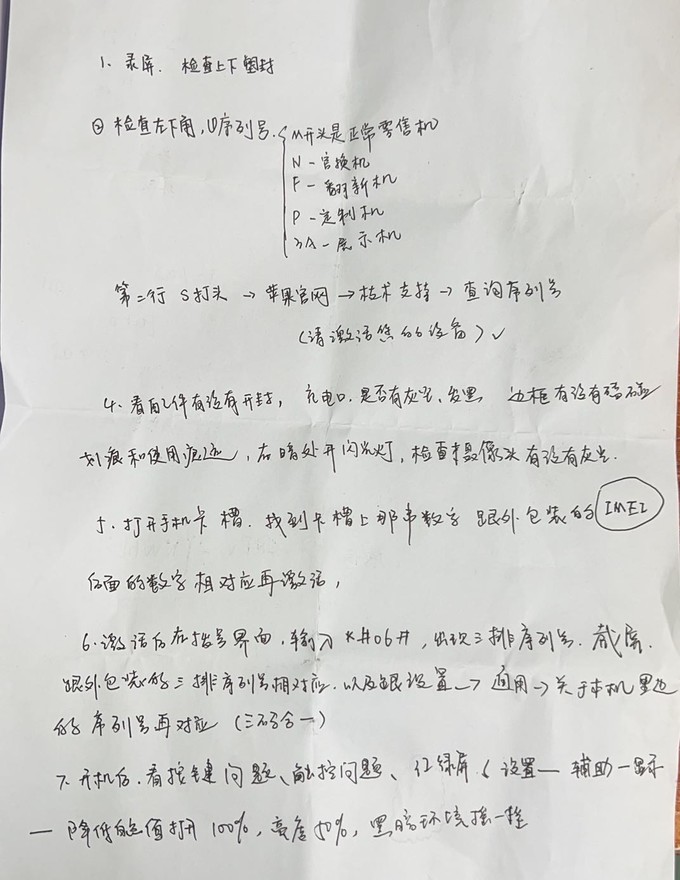 1、录屏. 检查上下塑封
② 检查左下角,(1)序列号. M开头是正常零售机
N - 官换机
F - 翻新机
P - 定制机
3A - 展示机
第二行 S打头 → 苹果官网 → 技术支持 → 查询序列号
(请激活您的设备) ✓
4. 看配件有没有开封, 充电口.是否有灰尘、发黑 边框有没有磕碰
划痕和使用痕迹, 在暗处开闪光灯, 检查摄像头有没有灰尘.
5. 打开手机卡槽. 找到卡槽上那串数字 跟外包装的 IMEI
后面的数字相对应再激活,
6. 激活后在拨号界面, 输入 *#06#, 出现三排序列号. 截屏.
跟外包装的三排序列号相对应. 以及跟设置 → 通用 → 关于本机里边
的序列号再对应 (三码合一)
7. 开机后. 看按键问题、触控问题、红绿屏 ( 设置 — 辅助 — 显示
— 降低白点值打开 100%, 亮度50%, 黑暗环境